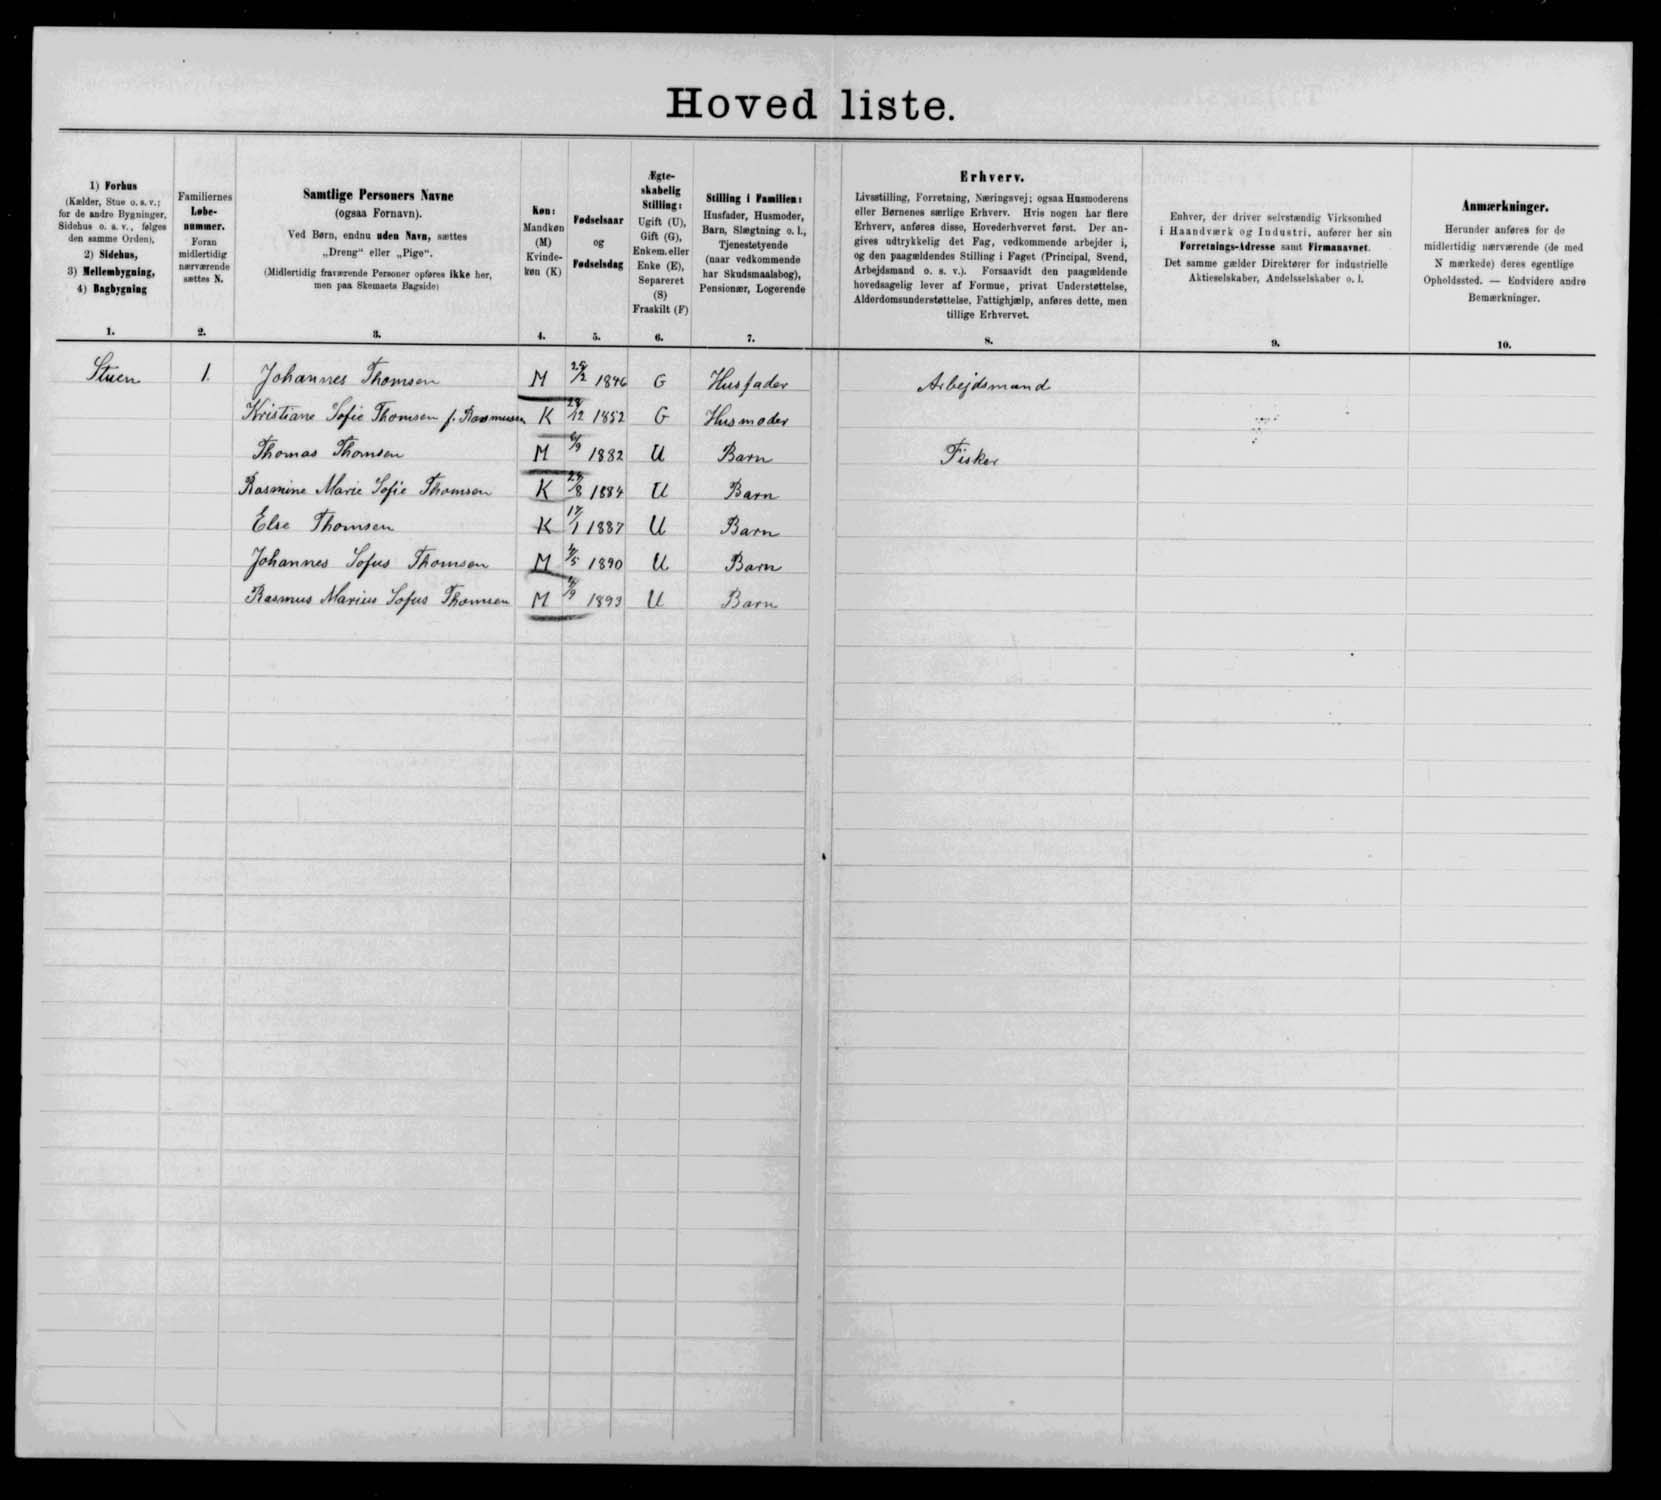 Hovedliste.
1) Forhus
(Kælder, Stue o. s. v.;
for de andre Bygninger,
Sidehus o. s. v., følges
den samme Orden),
2) Sidehus,
3) Mellembygning,
4) Bagbygning
1.
Familiernes
Løbe-
nummer.
Foran
midlertidig
nærværende
sættes N.
2.
Samtlige Personers Navne
(ogsaa Fornavn).
Ved Børn, endnu uden Navn, sættes
„Dreng" eller „Pige".
(Midlertidig fraværende Personer opføres ikke her,
men paa Skemaets Bagside)
3.
Køn:
Mandkøn
(M)
Kvinde-
køn (K)
4.
Fødselsaar
og
Fødselsdag
5.
Ægte-
skabelig
Stilling:
Ugift (U),
Gift (G),
Enkem. eller
Enke (E),
Separeret
(S)
Fraskilt (F)
6.
Stilling i Familien:
Husfader, Husmoder,
Barn, Slægtning o. l.,
Tjenestetyende
(naar vedkommende
har Skudsmaalsbog),
Pensionær, Logerende
7.
Erhverv.
Livsstilling, Forretning, Næringsvej; ogsaa Husmoderens
eller Børnenes særlige Erhverv. Hvis nogen har flere
Erhverv, anføres disse, Hovederhvervet først. Der an-
gives udtrykkelig det Fag, vedkommende arbejder i,
og den paagældendes Stilling i Faget (Principal, Svend,
Arbejdsmand o. s. v.). Forsaavidt den paagældende
hovedsagelig lever af Formue, privat Understøttelse,
Alderdomsunderstøttelse, Fattighjælp, anføres dette, men
tillige Erhvervet.
8.
Enhver, der driver selvstændig Virksomhed
i Haandværk og Industri, anfører her sin
Forretnings-Adresse samt Firmanavnet.
Det samme gælder Direktører for industrielle
Aktieselskaber, Andelsselskaber o. l.
9.
Anmærkninger.
Herunder anføres for de
midlertidig nærværende (de med
N mærkede) deres egentlige
Opholdssted. — Endvidere andre
Bemærkninger.
10.
Stuen 1. Johannes Thomsen M /2 1846 G Husfader Arbejdsmand
Kristiane Sofie Thomsen f. Rasmussen K 28/12 1852 G Husmoder
Thomas Thomsen M /9 1882 U Barn Fisker
Rasmine Marie Sofie Thomsen K 28/8 1884 U Barn
Else Thomsen K 17/1 1887 U Barn
Johannes Sofus Thomsen M /5 1890 U Barn
Rasmus Marius Sofus Thomsen M /9 1893 U Barn